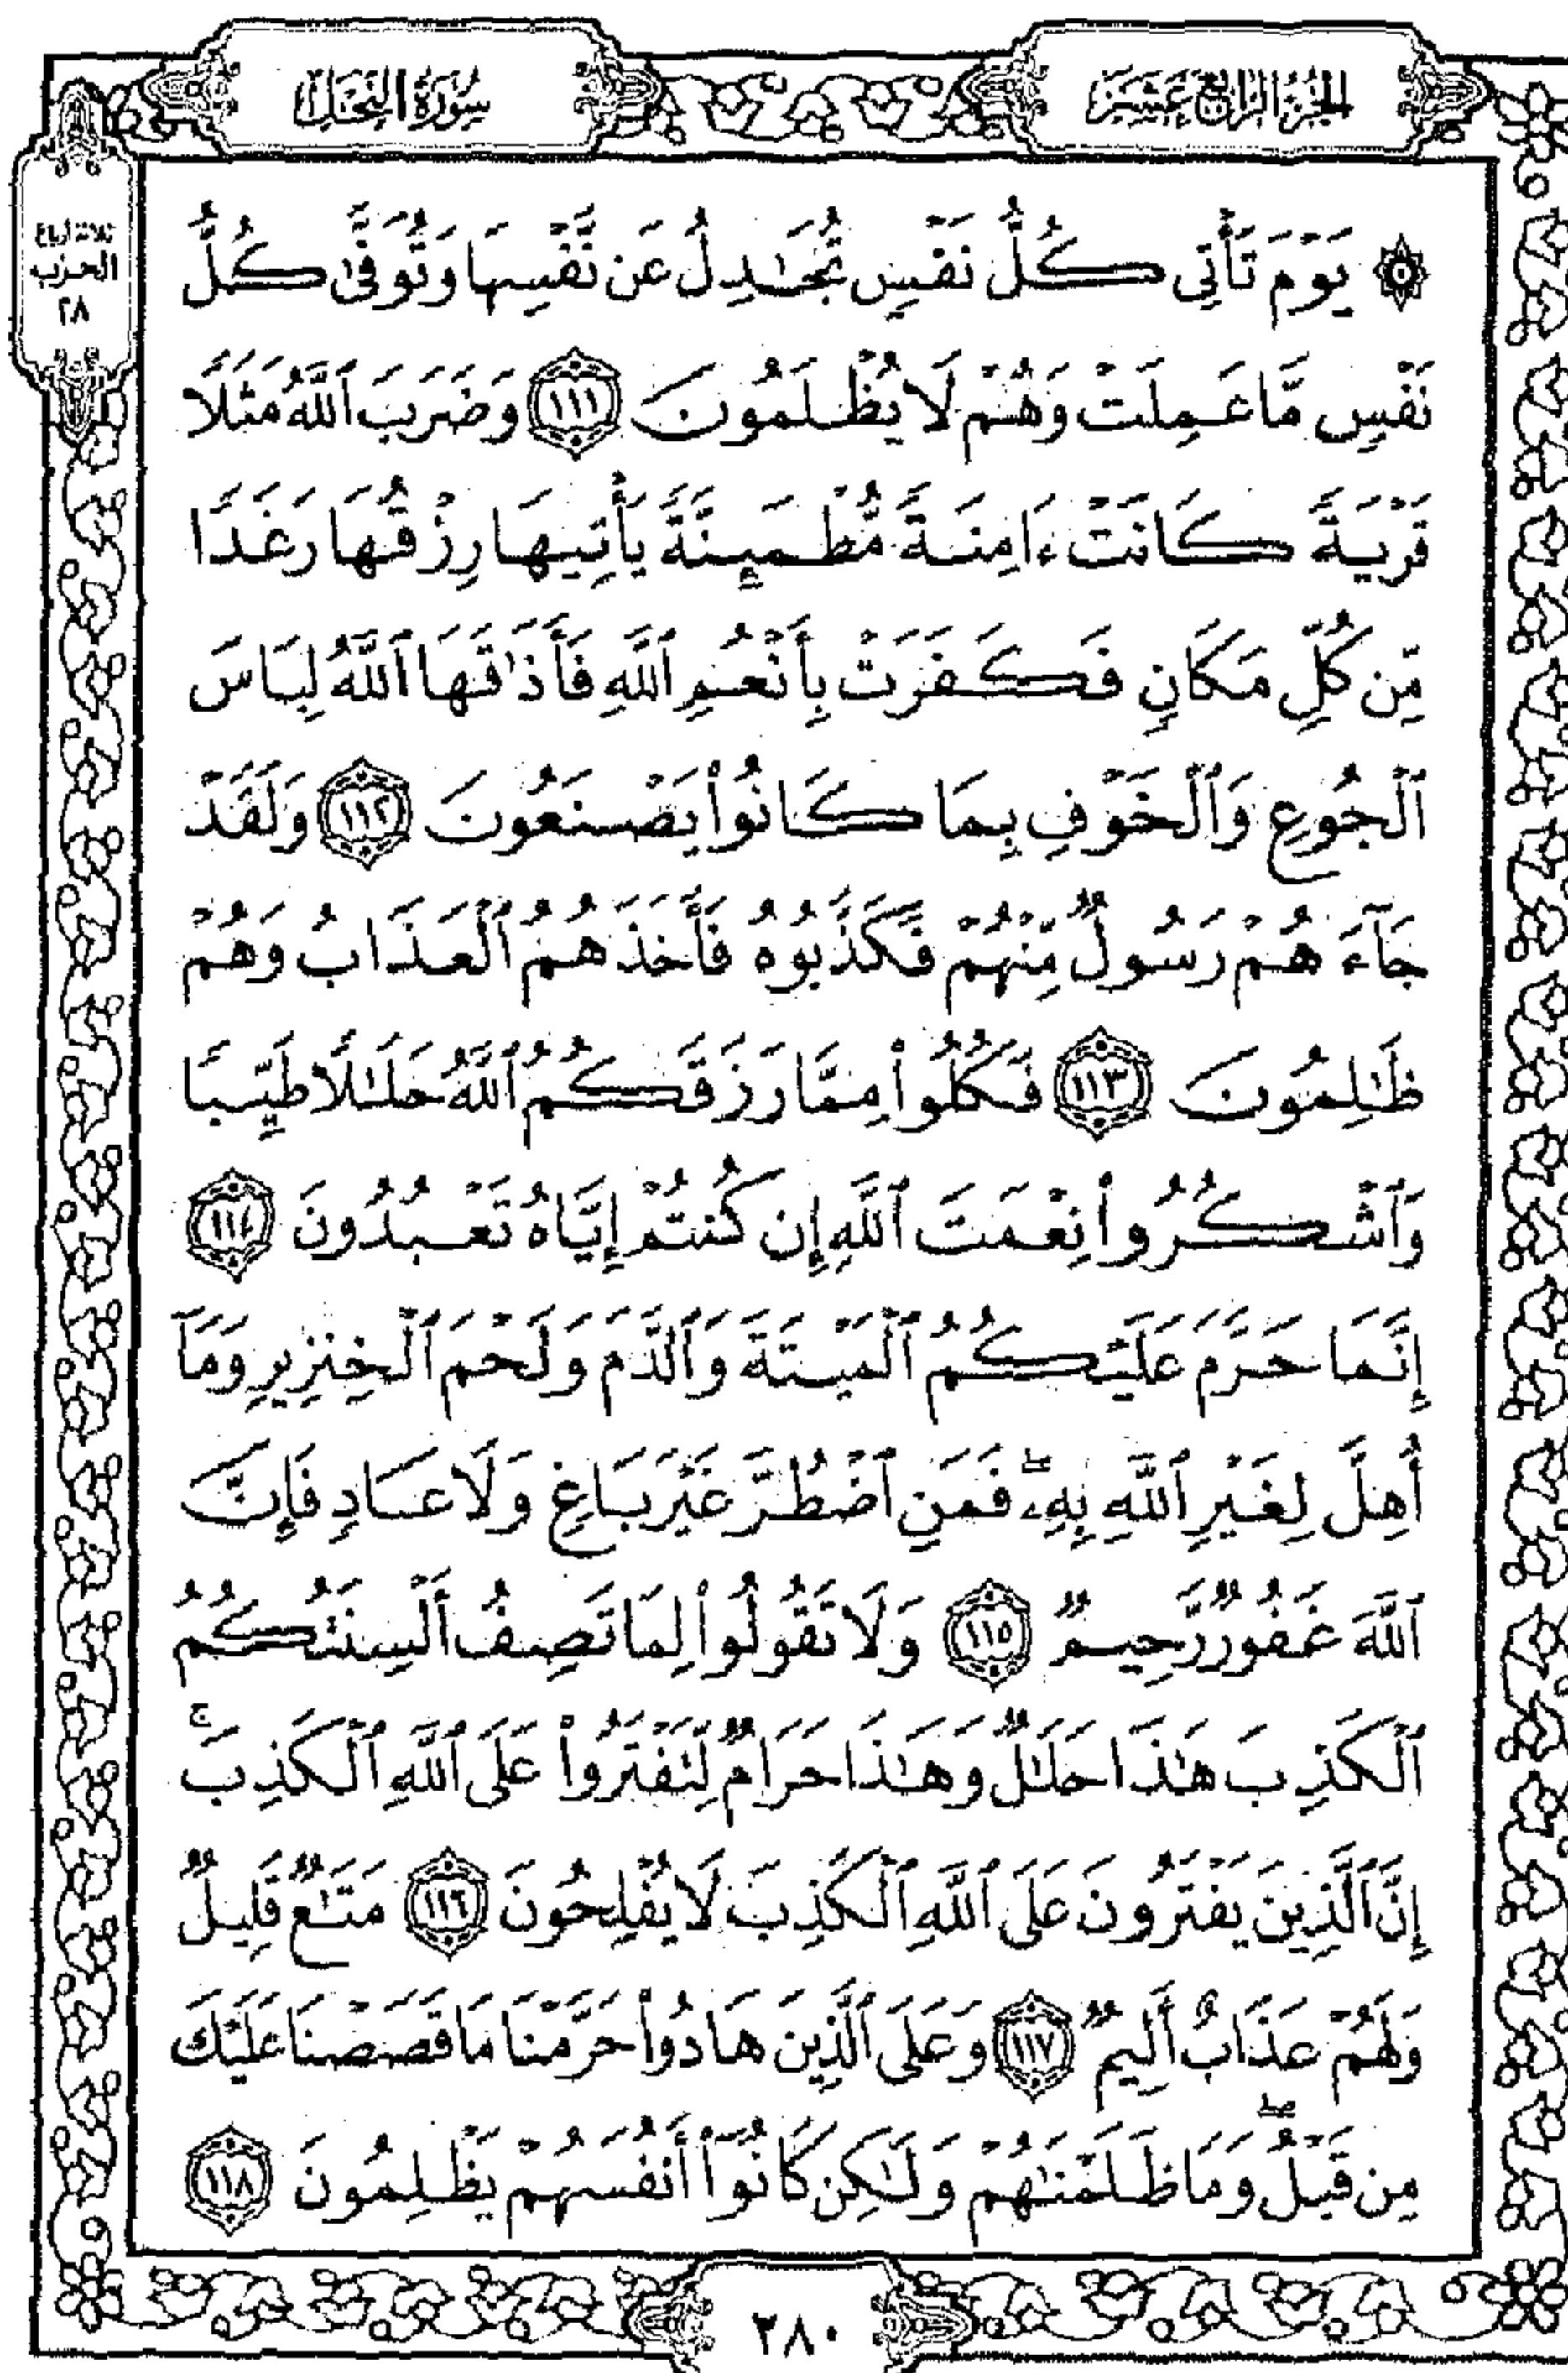 الجزء الرابع عشر
سورة النحل
ثلاثة أرباع
الحزب
٢٨
۞ يَوْمَ تَأْتِى كُلُّ نَفْسٍ تُجَٰدِلُ عَن نَّفْسِهَا وَتُوَفَّىٰ كُلُّ
نَفْسٍ مَّا عَمِلَتْ وَهُمْ لَا يُظْلَمُونَ ١١١ وَضَرَبَ ٱللَّهُ مَثَلًا
قَرْيَةً كَانَتْ ءَامِنَةً مُّطْمَئِنَّةً يَأْتِيهَا رِزْقُهَا رَغَدًا
مِّن كُلِّ مَكَانٍ فَكَفَرَتْ بِأَنْعُمِ ٱللَّهِ فَأَذَٰقَهَا ٱللَّهُ لِبَاسَ
ٱلْجُوعِ وَٱلْخَوْفِ بِمَا كَانُوا۟ يَصْنَعُونَ ١١٢ وَلَقَدْ
جَآءَهُمْ رَسُولٌ مِّنْهُمْ فَكَذَّبُوهُ فَأَخَذَهُمُ ٱلْعَذَابُ وَهُمْ
ظَٰلِمُونَ ١١٣ فَكُلُوا۟ مِمَّا رَزَقَكُمُ ٱللَّهُ حَلَٰلًا طَيِّبًا
وَٱشْكُرُوا۟ نِعْمَتَ ٱللَّهِ إِن كُنتُمْ إِيَّاهُ تَعْبُدُونَ ١١٤
إِنَّمَا حَرَّمَ عَلَيْكُمُ ٱلْمَيْتَةَ وَٱلدَّمَ وَلَحْمَ ٱلْخِنزِيرِ وَمَآ
أُهِلَّ لِغَيْرِ ٱللَّهِ بِهِۦ ۖ فَمَنِ ٱضْطُرَّ غَيْرَ بَاغٍ وَلَا عَادٍ فَإِنَّ
ٱللَّهَ غَفُورٌ رَّحِيمٌ ١١٥ وَلَا تَقُولُوا۟ لِمَا تَصِفُ أَلْسِنَتُكُمُ
ٱلْكَذِبَ هَٰذَا حَلَٰلٌ وَهَٰذَا حَرَامٌ لِّتَفْتَرُوا۟ عَلَى ٱللَّهِ ٱلْكَذِبَ ۚ
إِنَّ ٱلَّذِينَ يَفْتَرُونَ عَلَى ٱللَّهِ ٱلْكَذِبَ لَا يُفْلِحُونَ ١١٦ مَتَٰعٌ قَلِيلٌ
وَلَهُمْ عَذَابٌ أَلِيمٌ ١١٧ وَعَلَى ٱلَّذِينَ هَادُوا۟ حَرَّمْنَا مَا قَصَصْنَا عَلَيْكَ
مِن قَبْلُ ۖ وَمَا ظَلَمْنَٰهُمْ وَلَٰكِن كَانُوٓا۟ أَنفُسَهُمْ يَظْلِمُونَ ١١٨
٢٨٠